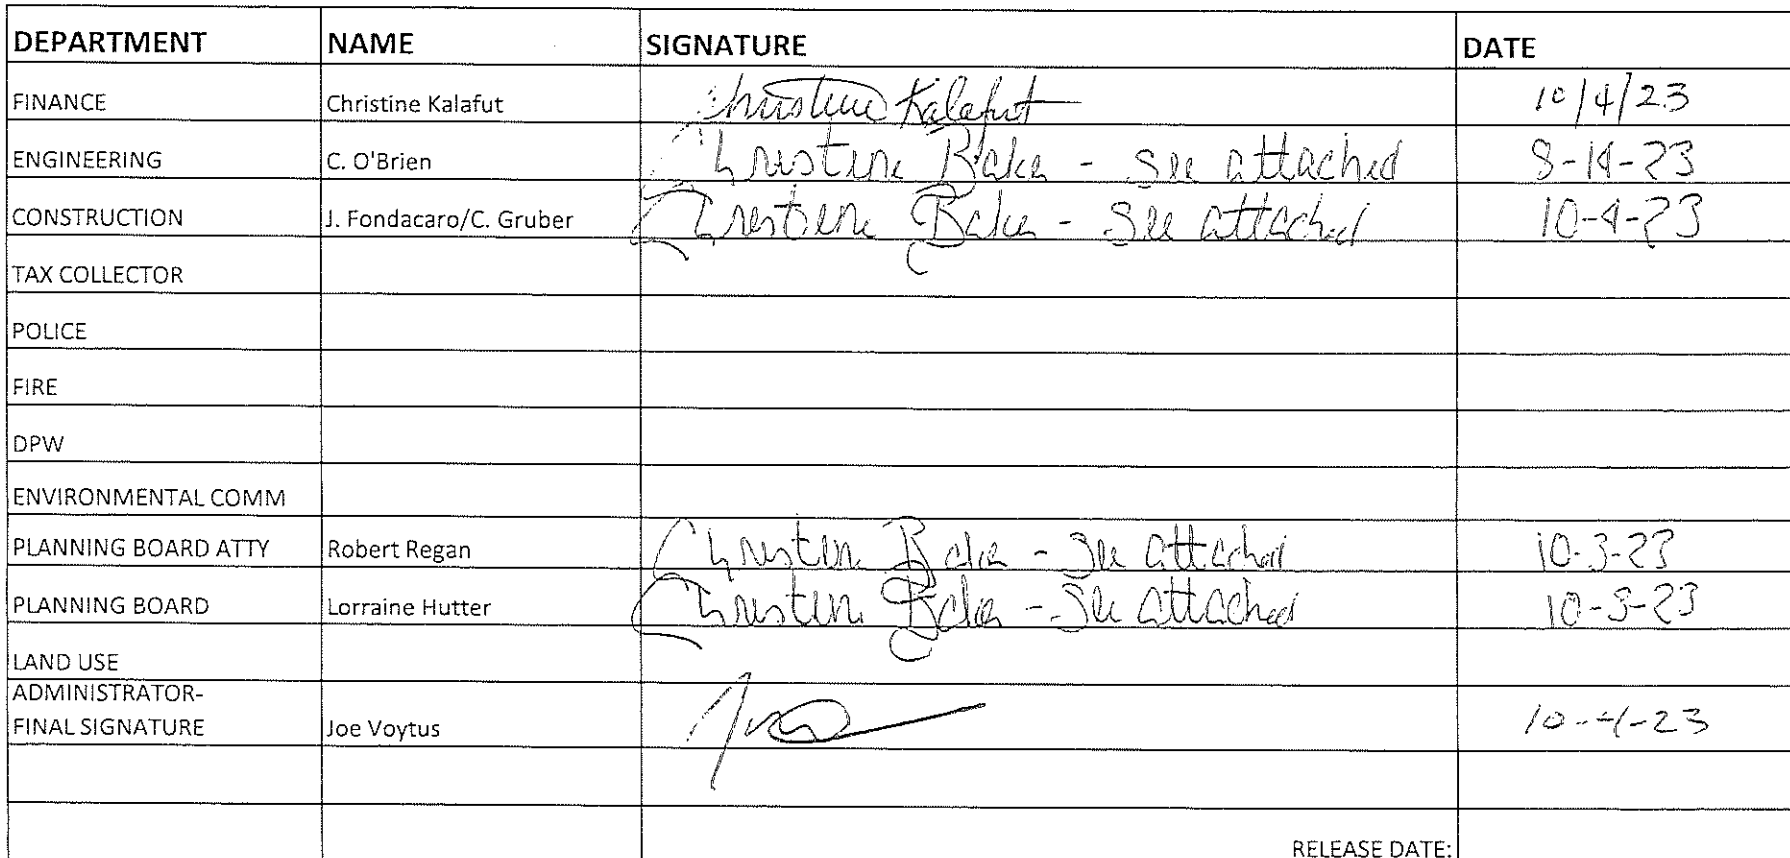 DEPARTMENT NAME SIGNATURE DATE
FINANCE Christine Kalafut Christine Kalafut 10/4/23
ENGINEERING C. O'Brien Christine Baker - see attached 8-14-23
CONSTRUCTION J. Fondacaro/C. Gruber Christine Baker - See attached 10-4-23
TAX COLLECTOR
POLICE
FIRE
DPW
ENVIRONMENTAL COMM
PLANNING BOARD ATTY Robert Regan Christine Baker - See attached 10-3-23
PLANNING BOARD Lorraine Hutter Christine Baker - See attached 10-3-23
LAND USE
ADMINISTRATOR-
FINAL SIGNATURE Joe Voytus 10-4-23
RELEASE DATE: